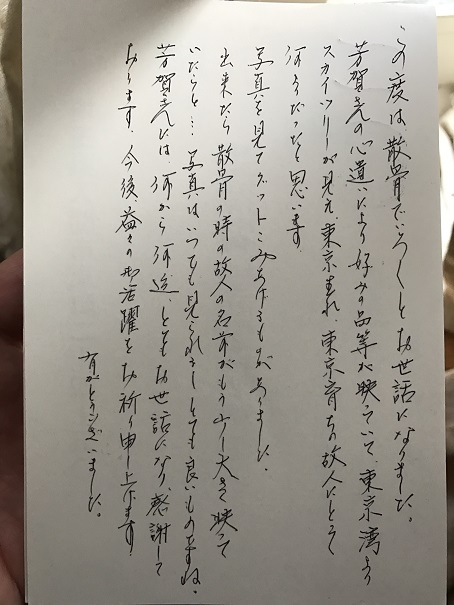 この度は散骨でいろいろとお世話になりました。
芳賀さんの心遣いにより好みの品等が映っていて、東京湾より
スカイツリーが見え、東京生れ、東京育ちの故人にとって
何よりだったと思います。
写真を見てグットこみあげるものがありました。
出来たら散骨の時の故人の名前がもう少し大きく映って
いたらと…写真はいつでも見られましてとても良いものですね。
芳賀さんには、何から何迄、とてもお世話になり、感謝して
おります。今後、益々の御活躍をお祈り申し上げます。
有がとうございました。